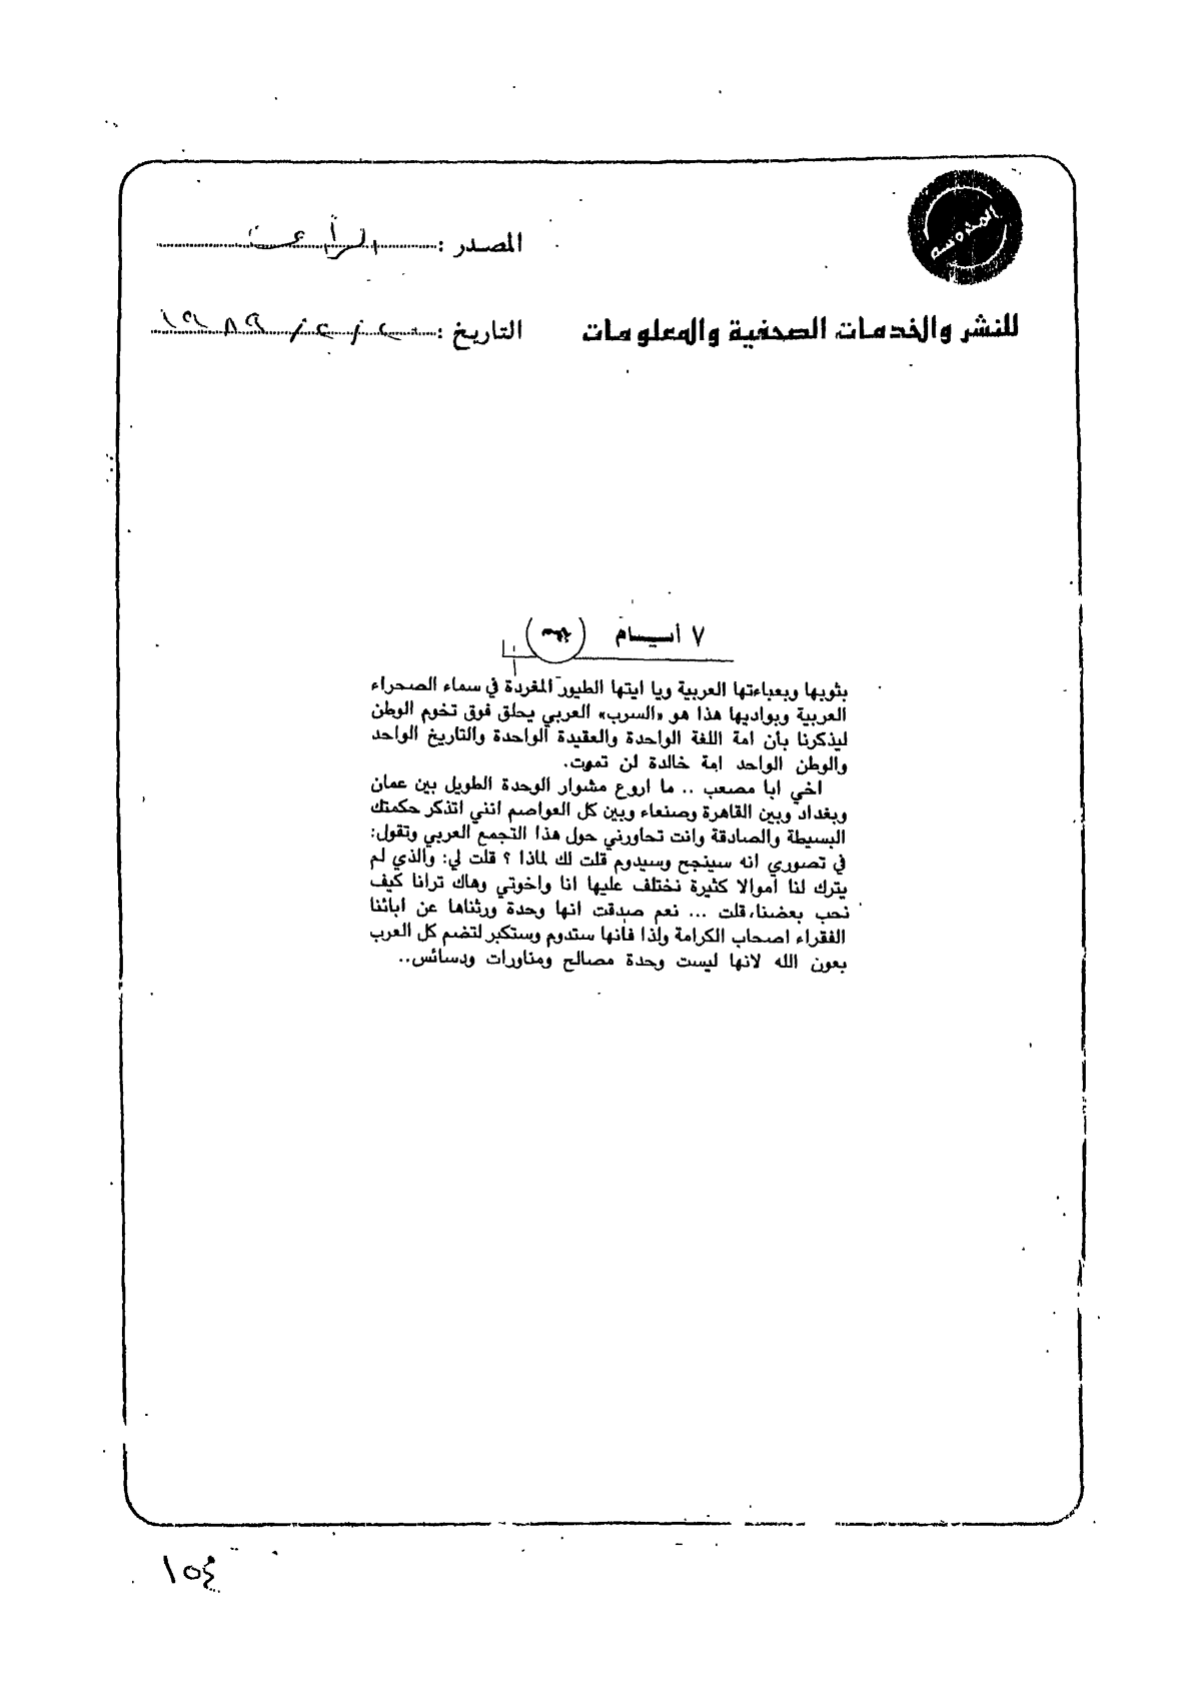 المصدر :
للنشر والخدمات الصحفية والمعلومات
التاريخ : ١٩٨٩
٧ أيـــام
بثوبها وبعباءتها العربية ويا ايتها الطيور المغردة في سماء الصحراء
العربية وبواديها هذا هو «السرب» العربي يحلق فوق تخوم الوطن
ليذكرنا بأن امة اللغة الواحدة والعقيدة الواحدة والتاريخ الواحد
والوطن الواحد امة خالدة لن تموت.
اخي ابا مصعب .. ما اروع مشوار الوحدة الطويل بين عمان
وبغداد وبين القاهرة وصنعاء وبين كل العواصم انني اتذكر حكمتك
البسيطة والصادقة وانت تحاورني حول هذا التجمع العربي وتقول:
في تصوري انه سينجح وسيدوم قلت لك لماذا ؟ قلت لي: والذي لم
يترك لنا اموالا كثيرة نختلف عليها انا واخوتي وهاك ترانا كيف
نحب بعضنا، قلت ... نعم صدقت انها وحدة ورثناها عن ابائنا
الفقراء اصحاب الكرامة ولذا فانها ستدوم وستكبر لتضم كل العرب
بعون الله لانها ليست وحدة مصالح ومناورات ودسائس..
١٥٤